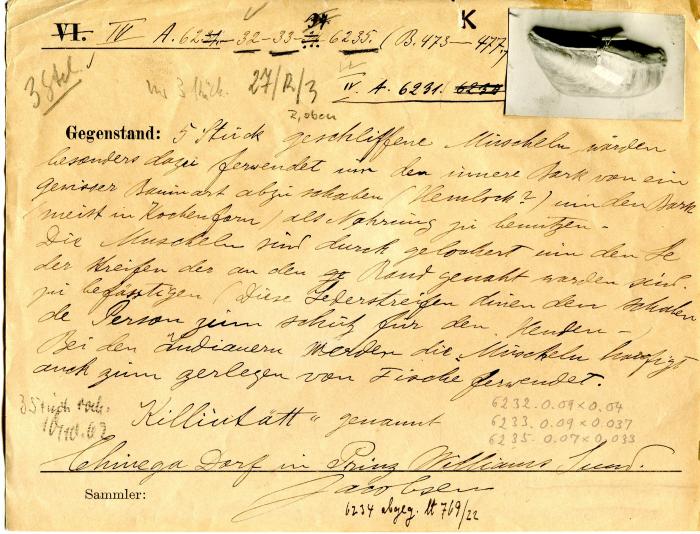 VI. IV A. 6231-32-33-34 6235. (B. 473-477.)
K
3 Stck.
nr 3 Stück. 27/R/3
2, oben
IV. A. 6231.
Gegenstand: 5 Stück geschliffene Muscheln würden
besonders dazu ferwendet um den innere Bark von ein
gewisser Baumart abzu schaben (Hemlock?) um den Bark
(meist in Kochenform) als Nahrung zu benutzen-
Die Muscheln sind durch gelochert um den Le
der streifen der an den Rand genaht warden sind.
zu befästigen (Diese Lederstreifen dinen dem schaben
de Person zum schutz für den Henden-
Bei den Indianern werden die Muscheln haufigt
auch zum zerlegen von Fische ferwendet.
3 Stück
„Killintätt" genannt
6232. 0.09 x 0.04
6233. 0.09 x 0.037
6235. 0.07 x 0.033
Chinega Dorf in Prinz Williams Sund.
Sammler: Jacobsen
6234 abgeg. lt 769/22